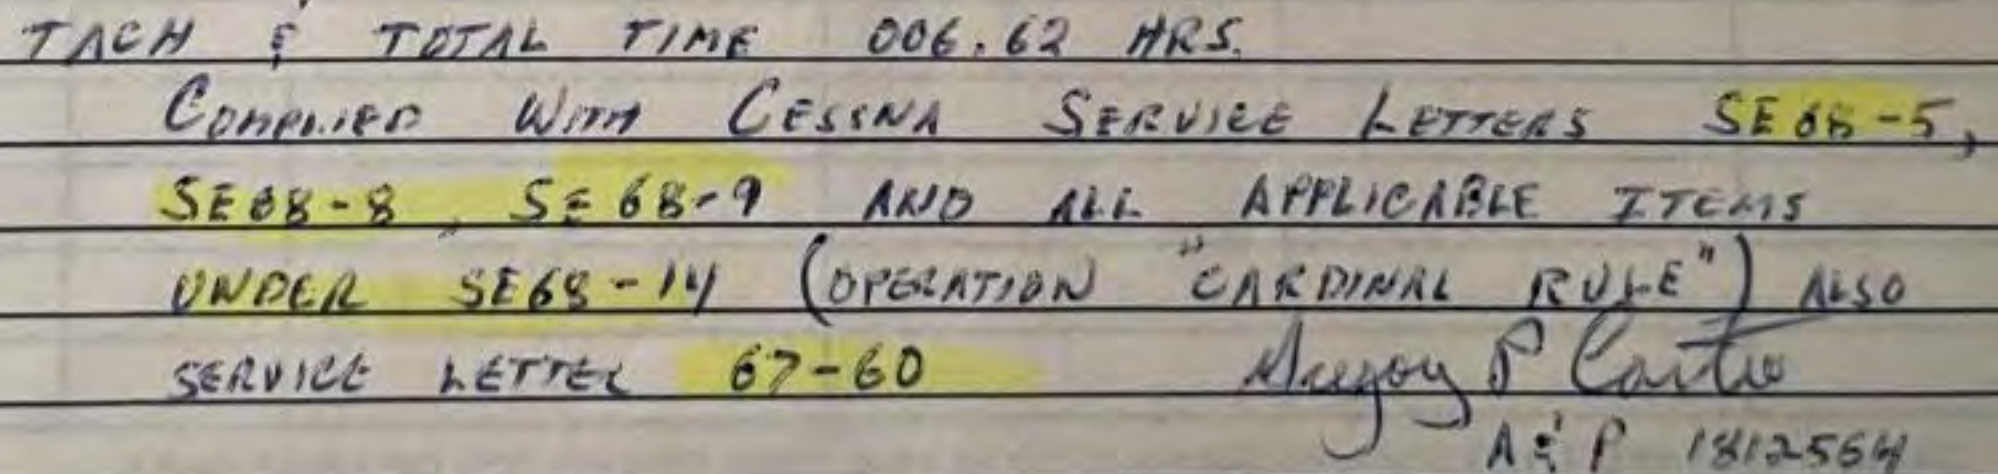 TACH & TOTAL TIME 006.62 HRS.
COMPLIED WITH CESSNA SERVICE LETTERS SE68-5,
SE68-8, SE68-9 AND ALL APPLICABLE ITEMS
UNDER SE68-14 (OPERATION "CARDINAL RULE") ALSO
SERVICE LETTER 67-60
P
A & P 1812564